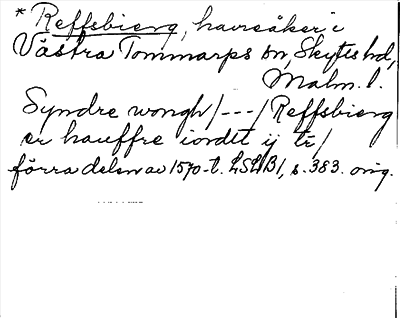 * Reffsbierg, havreåker i
Västra Tommarps sn, Skytts hd,
Malm. l.
Syndre wongh /---/ Reffsbierg
er hauffre iordet ij tr/
förra delen av 1570-t. LSLB1, s. 383. orig.